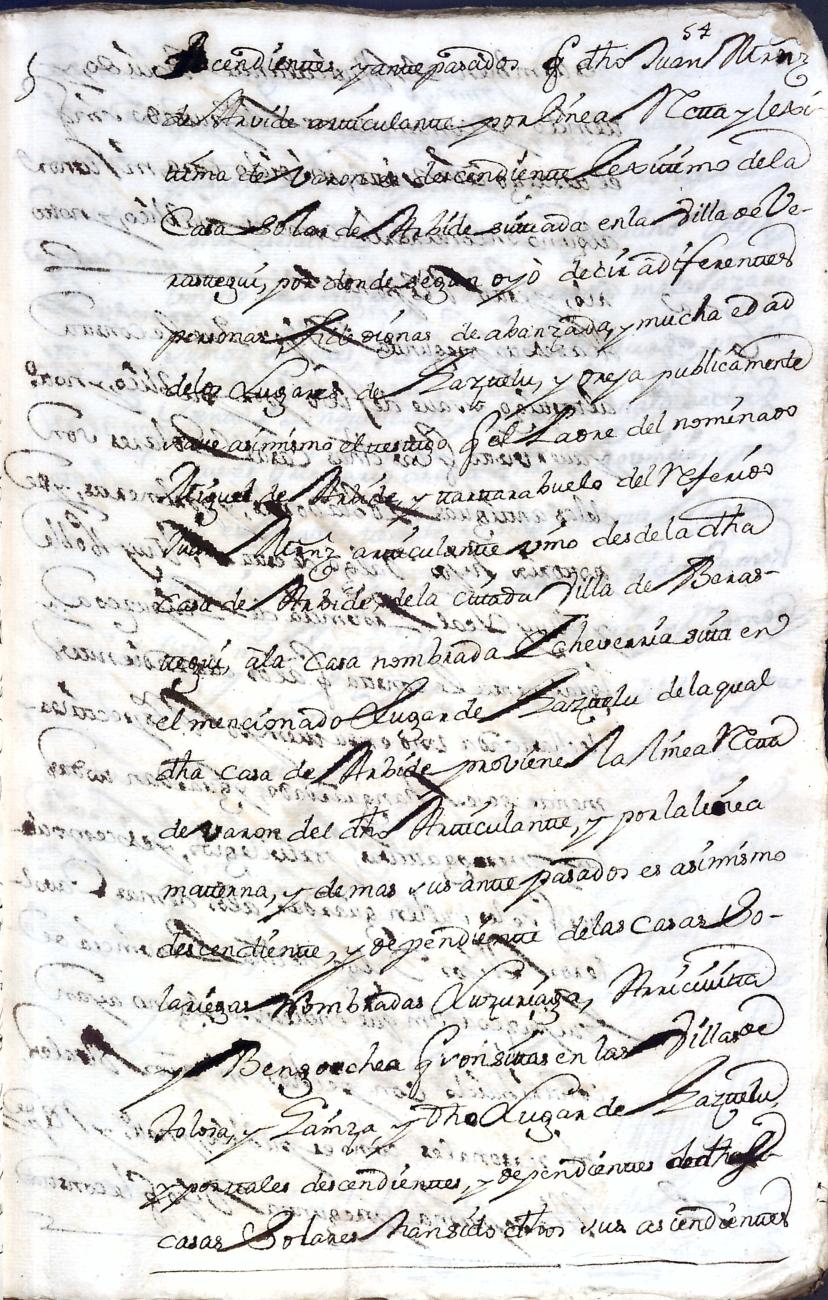 54
Ascendientes y antepasados q dho Juan Mrnz
de Arbide articulante: por línea Rcta y lexi-
tima de Varon es descendiente lexitimo de la
Casa Solar de Arbide sittada en la Villa de Ve-
rastegui, por donde segun oyò decir à diferentes
personas fidedignas de abanzada, y mucha edad
delos Lugares de Gaztelu, y oreja publicamente
save asimismo el testigo q el Padre del nominado
Miguel de Arbide, y tartarabuelo del Referido
Juan Mrnz articulante vino desde la dha
casa de Arbide, de la citada Villa de Beras-
tegui, àla casa nombrada Echeverria sita en
el mencionado Lugar de Gaztelu de la qual
dha casa de Arbide proviene la línea Rcta
de varon del dho Articulante, y por la linea
materna, y demas sus antepasados es asimismo
descendiente, y dependiente delas casas So-
lariegas Nombradas Luzuriaga, Arricivita
y Bengoechea q son sitas en las Villas de
Tolosa, y Gainza y dho Lugar de Gaztelu,
y por tales descendientes, y dependientes de dhas
casas Solares han sido dhos sus ascendientes